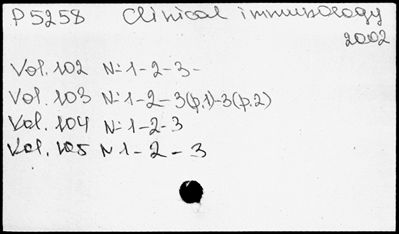 P5258 Clinical immunology
2002
Vol. 102 N: 1-2-3-
Vol. 103 N: 1-2-3(p.1)-3(p.2)
Vol. 104 N: 1-2-3
Vol. 105 N 1-2-3